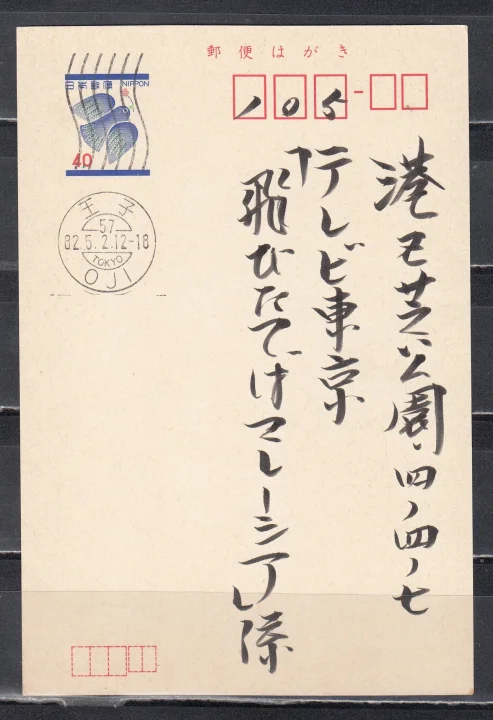 郵便はがき
105
日本郵便 NIPPON
40
王子
57
82.5.2.12-18
TOKYO
OJI
港区芝公園、四ノ四ノ七
テレビ東京
飛びたてげマレーシア係